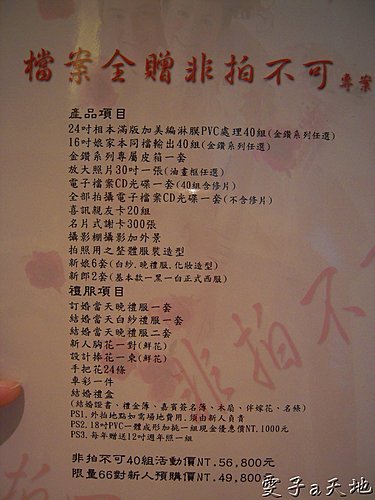 檔案全贈非拍不可專案
產品項目
24吋相本滿版加美編淋膜PVC處理40組(金鑽系列任選)
16吋娘家本同檔輸出40組(金鑽系列任選)
金鑽系列專屬皮箱一套
放大照片30吋一張(油畫框任選)
電子檔案CD光碟一套(40組含修片)
全部拍攝電子檔案CD光碟一套(不含修片)
喜訊親友卡20組
名片式謝卡300張
攝影棚攝影加外景
拍照用之整體服裝造型
新娘6套(白紗.晚禮服.化妝造型)
新郎2套(基本款一黑一白正式西服)
禮服項目
訂婚當天晚禮服一套
結婚當天白紗禮服一套
結婚當天晚禮服二套
新人胸花一對(鮮花)
設計捧花一束(鮮花)
手把花24條
車彩一件
結婚禮盒
(結婚證書、禮金簿、嘉賓簽名簿、木扇、伴嫁花、名條)
PS1.外拍地點如需場地費用.須由新人負責
PS2.18吋PVC一體成形加挑一組現金優惠價NT.1000元
PS3.每年贈送12吋週年照一組
非拍不可40組活動價NT.56,800元
限量66對新人預購價NT.49,800元
非拍不
雯子a天地